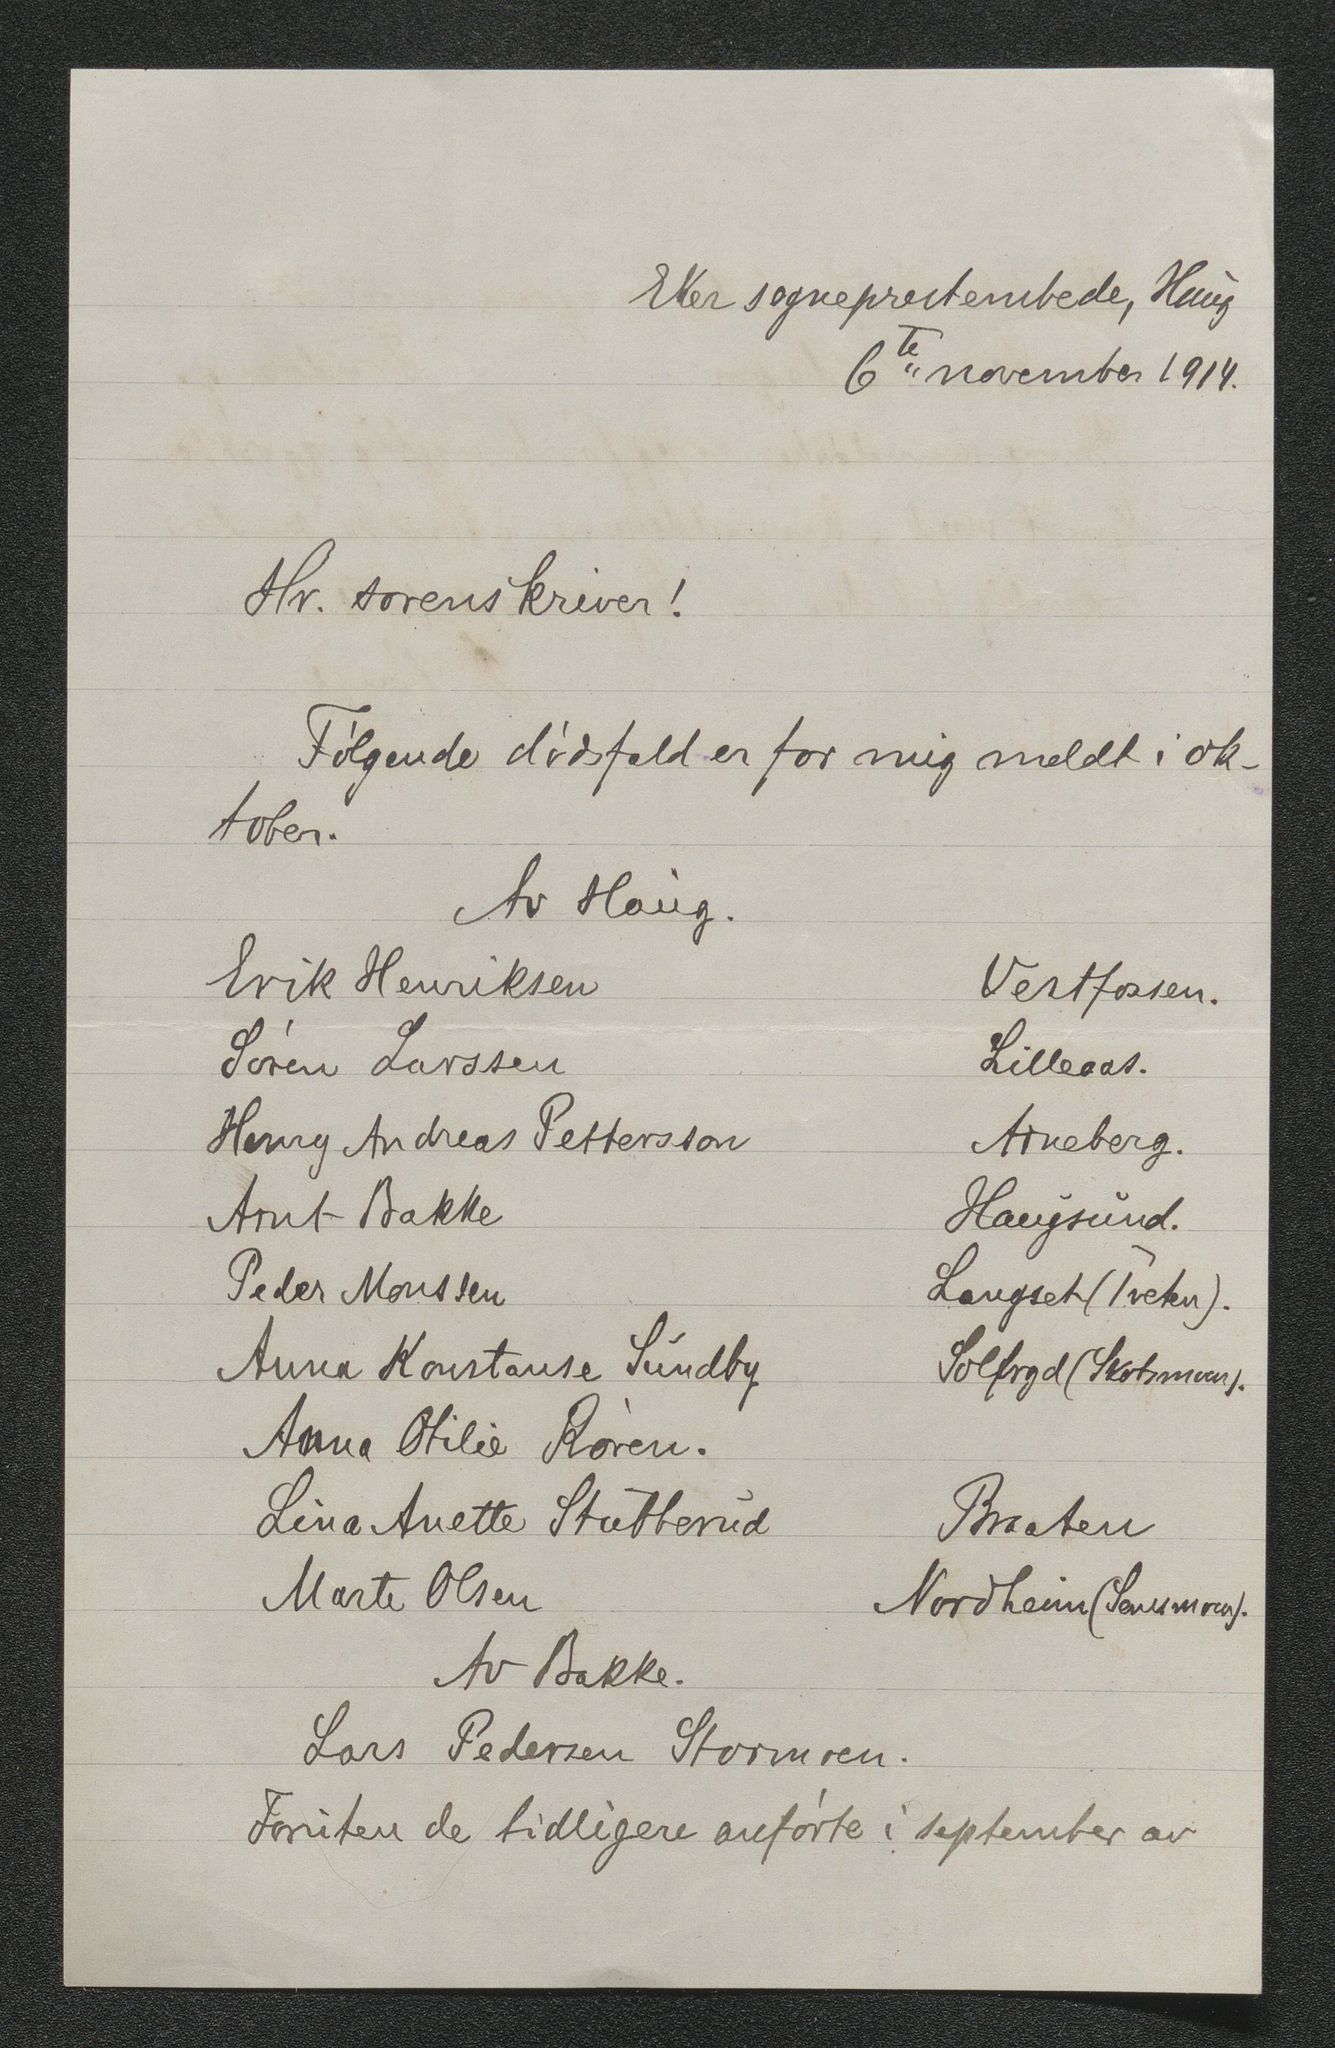 Eker sogneprestembede, Haug
6te november 1914.
Hr. sorenskriver!
Følgende dødsfald er for mig meldt i ok-
tober.
Av Haug.
Erik Henriksen Vestfossen.
Søren Larssen Lilleaas.
Henry Andreas Pettersson Arneberg.
Arnt Bakke Haugsund.
Peder Monssen Langset (Tveten).
Anna Konstanse Sundby Solfryd (Skotsmoen).
Anna Otilie Røren.
Lina Anette Stubberud Braaten
Marte Olsen Nordheim (Semsmoen).
Av Bakke.
Lars Pedersen Stormoen.
Foruten de tidligere anførte i september av